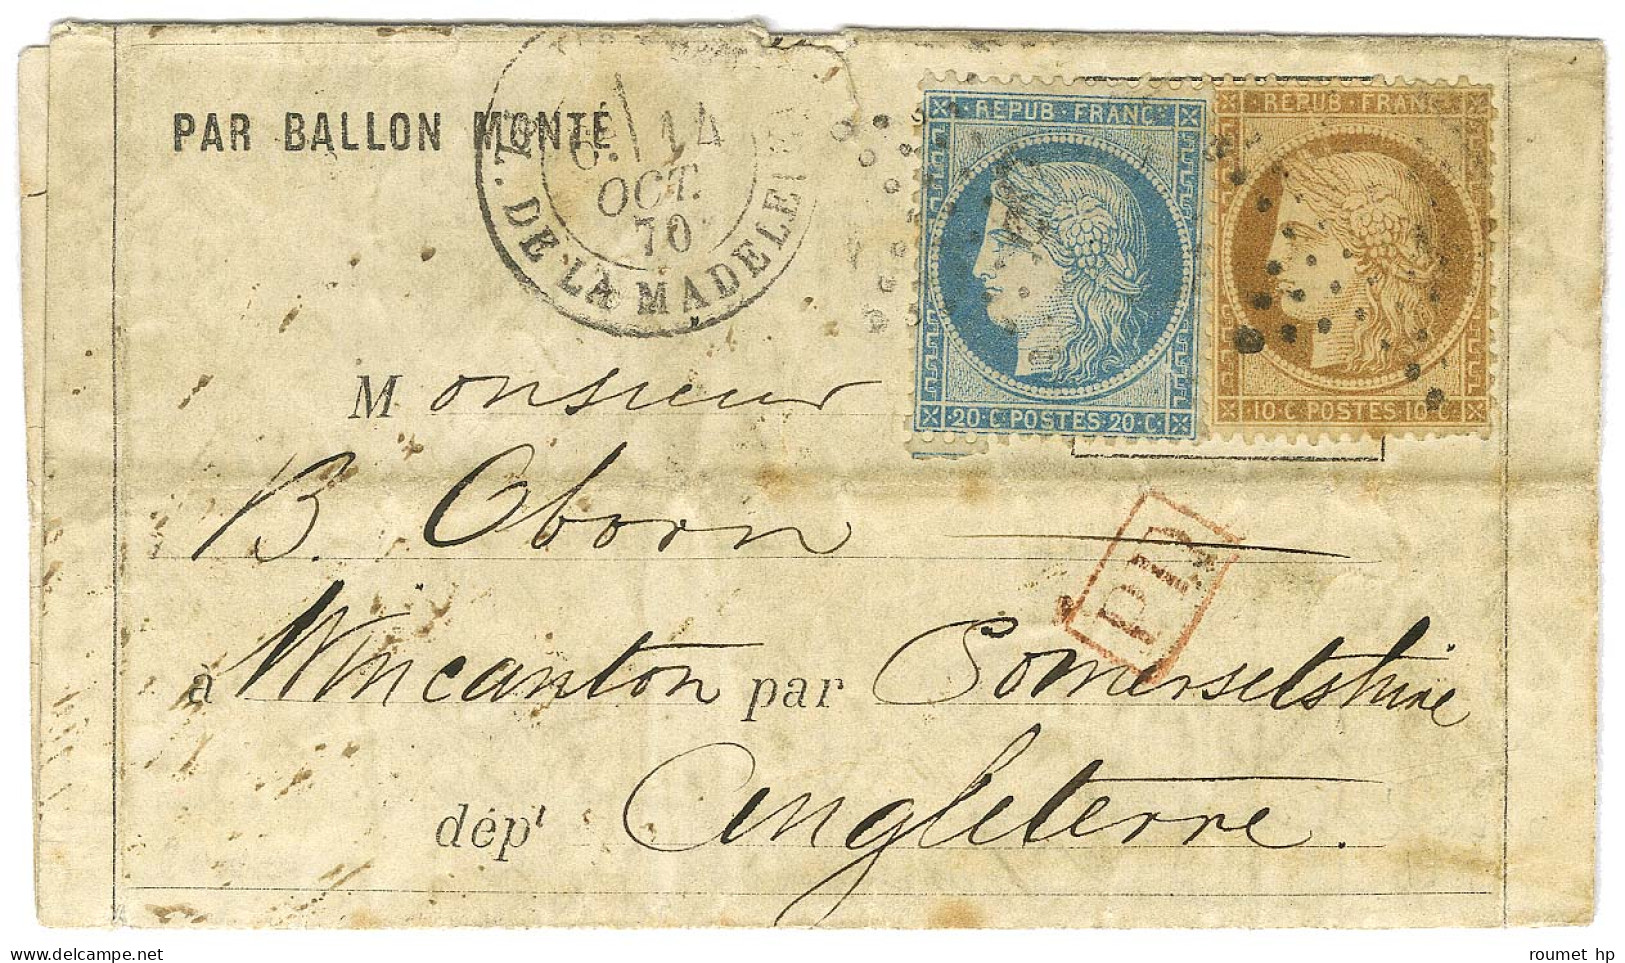 PAR BALLON MONTÉ
PL. DE LA MADELEINE
6.
14
OCT.
70
REPUB·FRANC
20·C POSTES·20·C·
REPUB·FRANC
10·C POSTES·10·C
Monsieur
B. Oborn
PD
à Wincanton par Somersetshire
dép.t Angleterre.
roumet hp